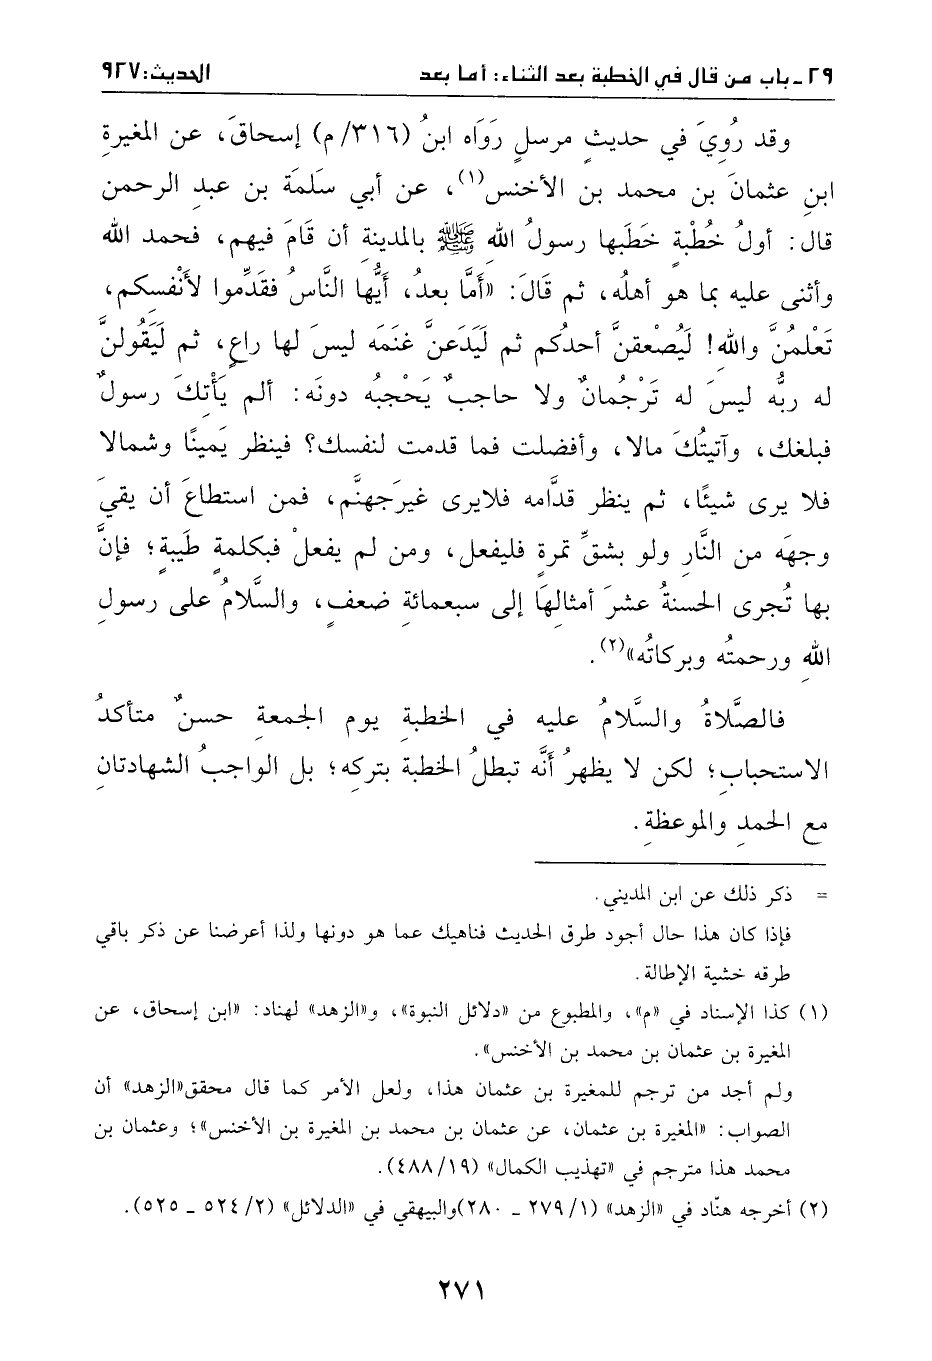 ٢٩ ـ باب من قال في الخطبة بعد الثناء: أما بعد الحديث: ٩٢٧
وقد رُوِيَ في حديثٍ مرسلٍ رَوَاه ابنُ (٣١٦/م) إسحاقَ، عن المغيرةِ
ابنِ عثمانَ بن محمد بن الأخنس(١)، عن أبي سَلَمَة بن عبدِ الرحمن
قال: أولُ خُطْبةٍ خَطَبها رسولُ اللهِ ﷺ بالمدينةِ أن قَامَ فيهم، فحمد الله
وأثنى عليه بما هو أهلُه، ثم قَالَ: «أَمَّا بعدُ، أَيُّها النَّاسُ فقَدِّموا لأَنْفسِكم،
تَعْلمُنَّ واللهِ! لَيُصْعقنَّ أحدُكم ثم لَيَدَعنَّ غنَمَه ليسَ لها راعٍ، ثم لَيَقُولنَّ
له ربُّه ليسَ له تَرْجُمانٌ ولا حاجبٌ يَحْجبُه دونَه: ألم يَأْتِكَ رسولٌ
فبلغك، وآتيتُكَ مالا، وأفضلت فما قدمت لنفسك؟ فينظر يَمينًا وشمالا
فلا يرى شيئًا، ثم ينظر قدَّامه فلايرى غيرَجهنَّم، فمن استطاعَ أن يقيَ
وجهَه من النَّارِ ولو بشقِّ تمرةٍ فليفعل، ومن لم يفعلْ فبكلمةٍ طَيبةٍ؛ فإنَّ
بها تُجرى الحسنةُ عشرَ أمثالِهَا إلى سبعمائةِ ضعفٍ، والسَّلامُ على رسولِ
اللهِ ورحمتُه وبركاتُه»(٢).
فالصَّلاةُ والسَّلامُ عليه في الخطبةِ يوم الجمعةِ حسنٌ متأكدُ
الاستحبابِ؛ لكن لا يظهرُ أنَّه تبطلُ الخطبة بتركِه؛ بل الواجبُ الشهادتانِ
مع الحمدِ والموعظةِ.
= ذكر ذلك عن ابن المديني.
فإذا كان هذا حال أجود طرق الحديث فناهيك عما هو دونها ولذا أعرضنا عن ذكر باقي
طرقه خشية الإطالة.
(١) كذا الإسناد في «م»، والمطبوع من «دلائل النبوة»، و«الزهد» لهناد: «ابن إسحاق، عن
المغيرة بن عثمان بن محمد بن الأخنس».
ولم أجد من ترجم للمغيرة بن عثمان هذا، ولعل الأمر كما قال محقق«الزهد» أن
الصواب: «المغيرة بن عثمان، عن عثمان بن محمد بن المغيرة بن الأخنس»؛ وعثمان بن
محمد هذا مترجم في «تهذيب الكمال» (٤٨٨/١٩).
(٢) أخرجه هنّاد في «الزهد» (١/ ٢٧٩ ـ ٢٨٠)والبيهقي في «الدلائل» (٢/ ٥٢٤ ـ ٥٢٥).
٢٧١